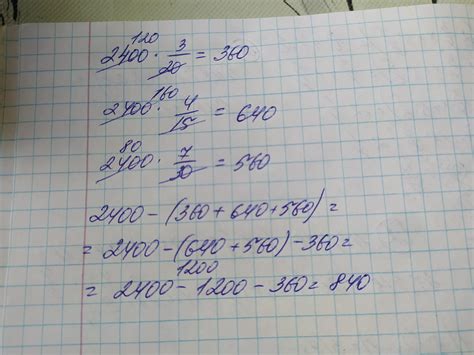 120
2400 · 3/20 = 360
160
2400 · 4/15 = 640
80
2400 · 7/30 = 560
2400 - (360 + 640 + 560) =
= 2400 - (640 + 560) - 360 =
1200
= 2400 - 1200 - 360 = 840